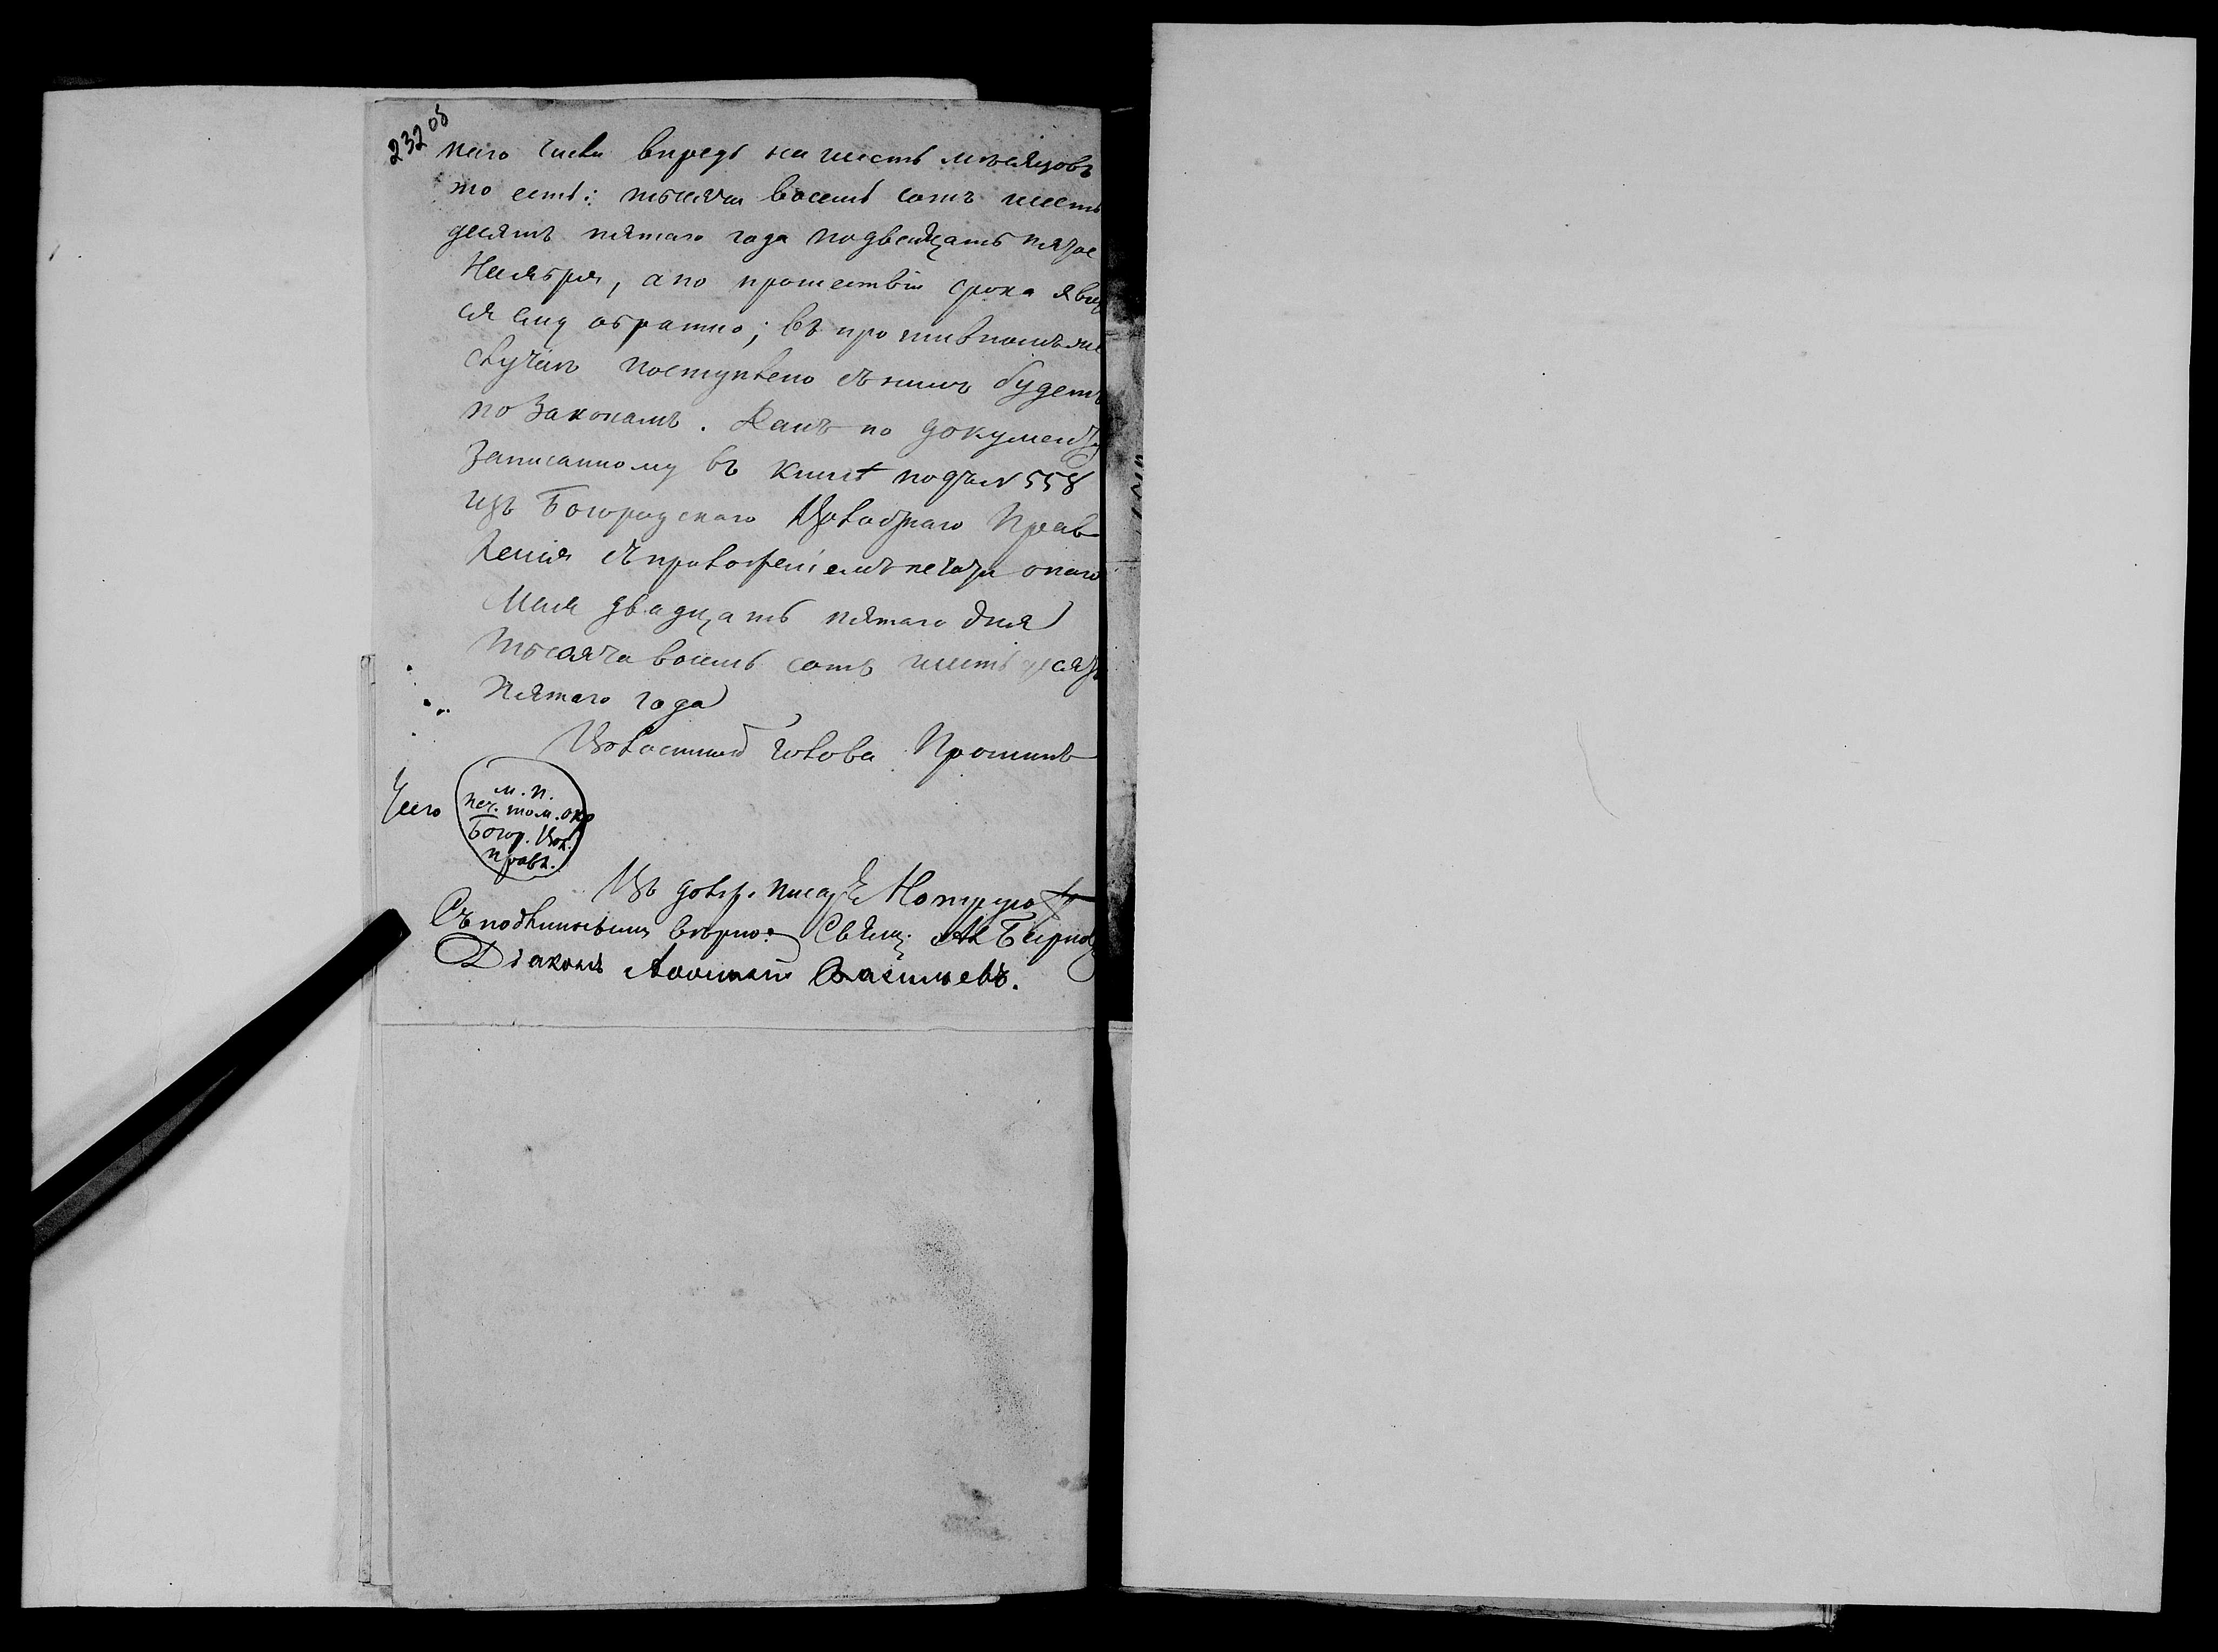 232 об
наго числа впредь на шесть мѣсяцовъ
то есть: тысяча восемь сотъ шесть
десятъ пятаго года по двадцать пятое
Ноября, а по прошествіи срока явит
ся ему обратно; въ противномъ же
случаѣ поступлено съ нимъ будетъ
по законамъ. Данъ по документу
записанному въ книгѣ подъ № 558
изъ Богородскаго Волостнаго Прав
ленія съ приложеніемъ печати онаго
Мая двадцать пятаго дня
тысяча восемь сотъ шестьдесятъ
пятаго года
Волостной Голова Прошинъ
м. п.
печ. том. окр
Богор. Вол.
правл.
Съ подлиннымъ вѣрно: Свящ.
Діаконъ Васильевъ.